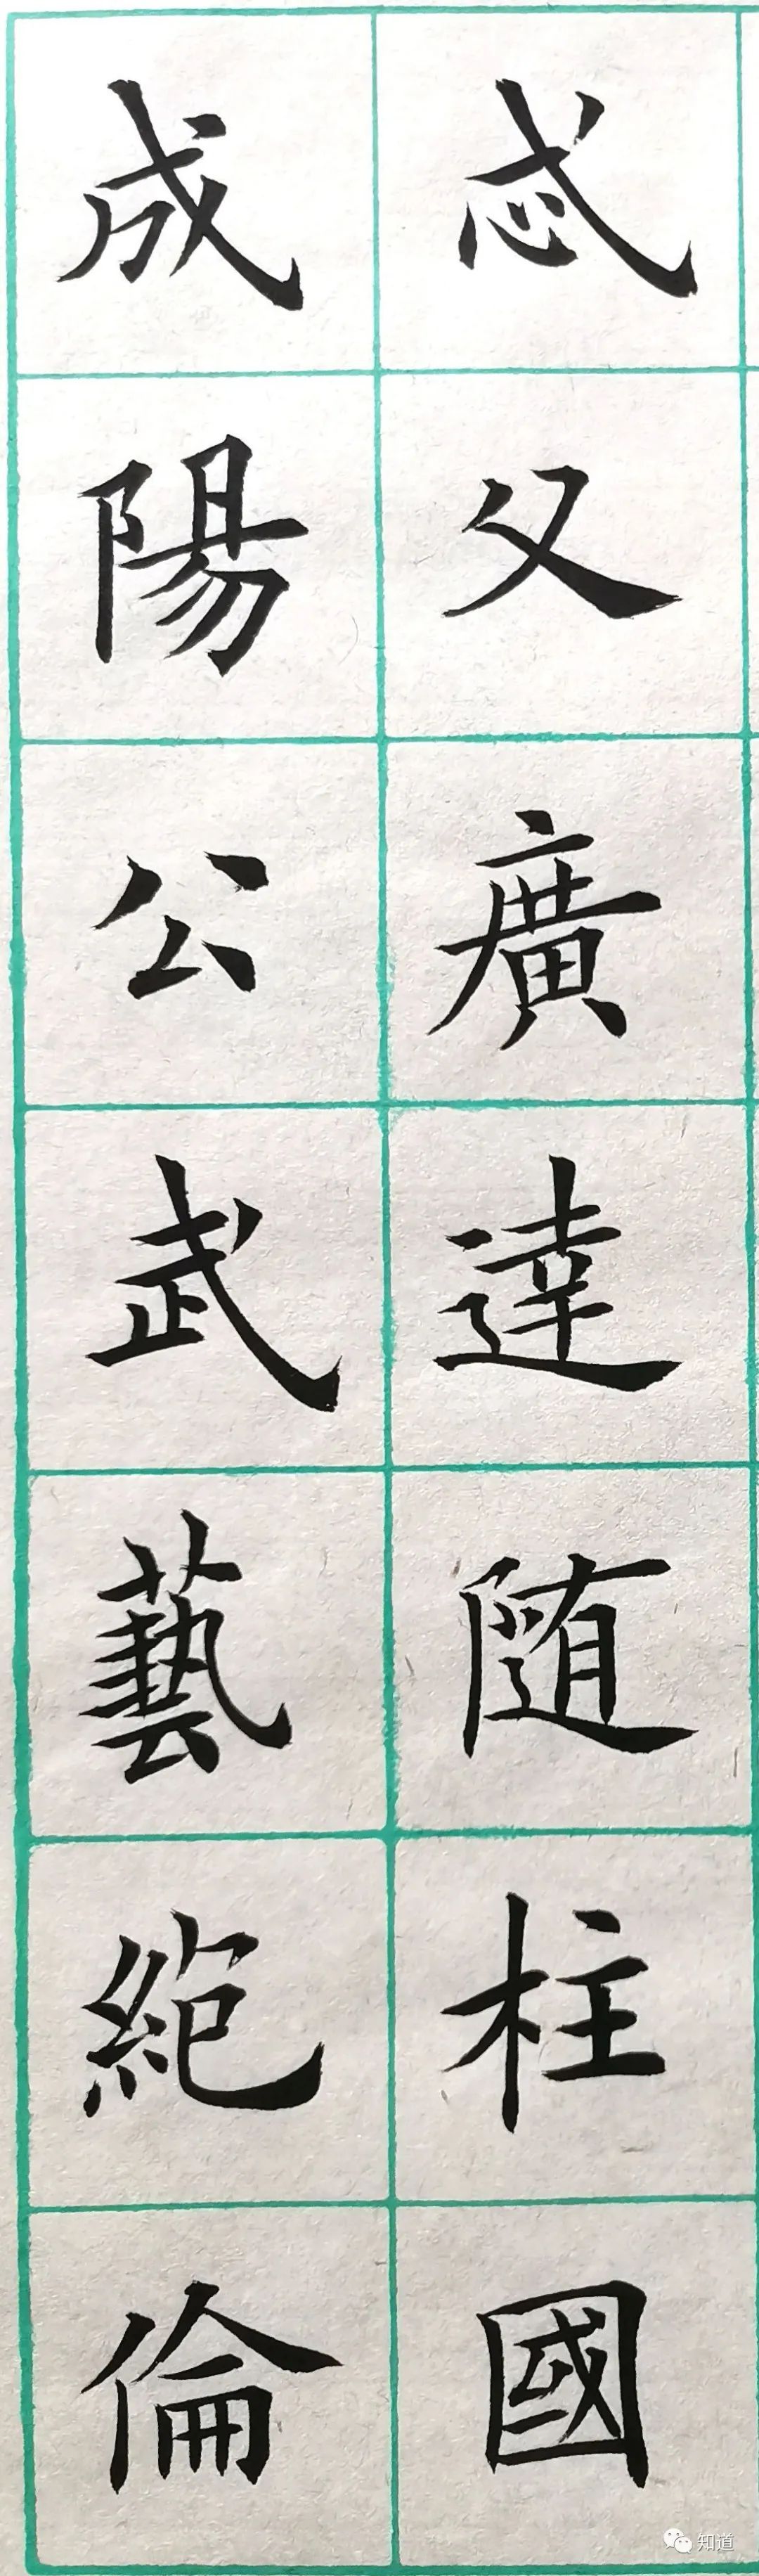 忒父廣達随柱國
成陽公武藝絶倫
知道